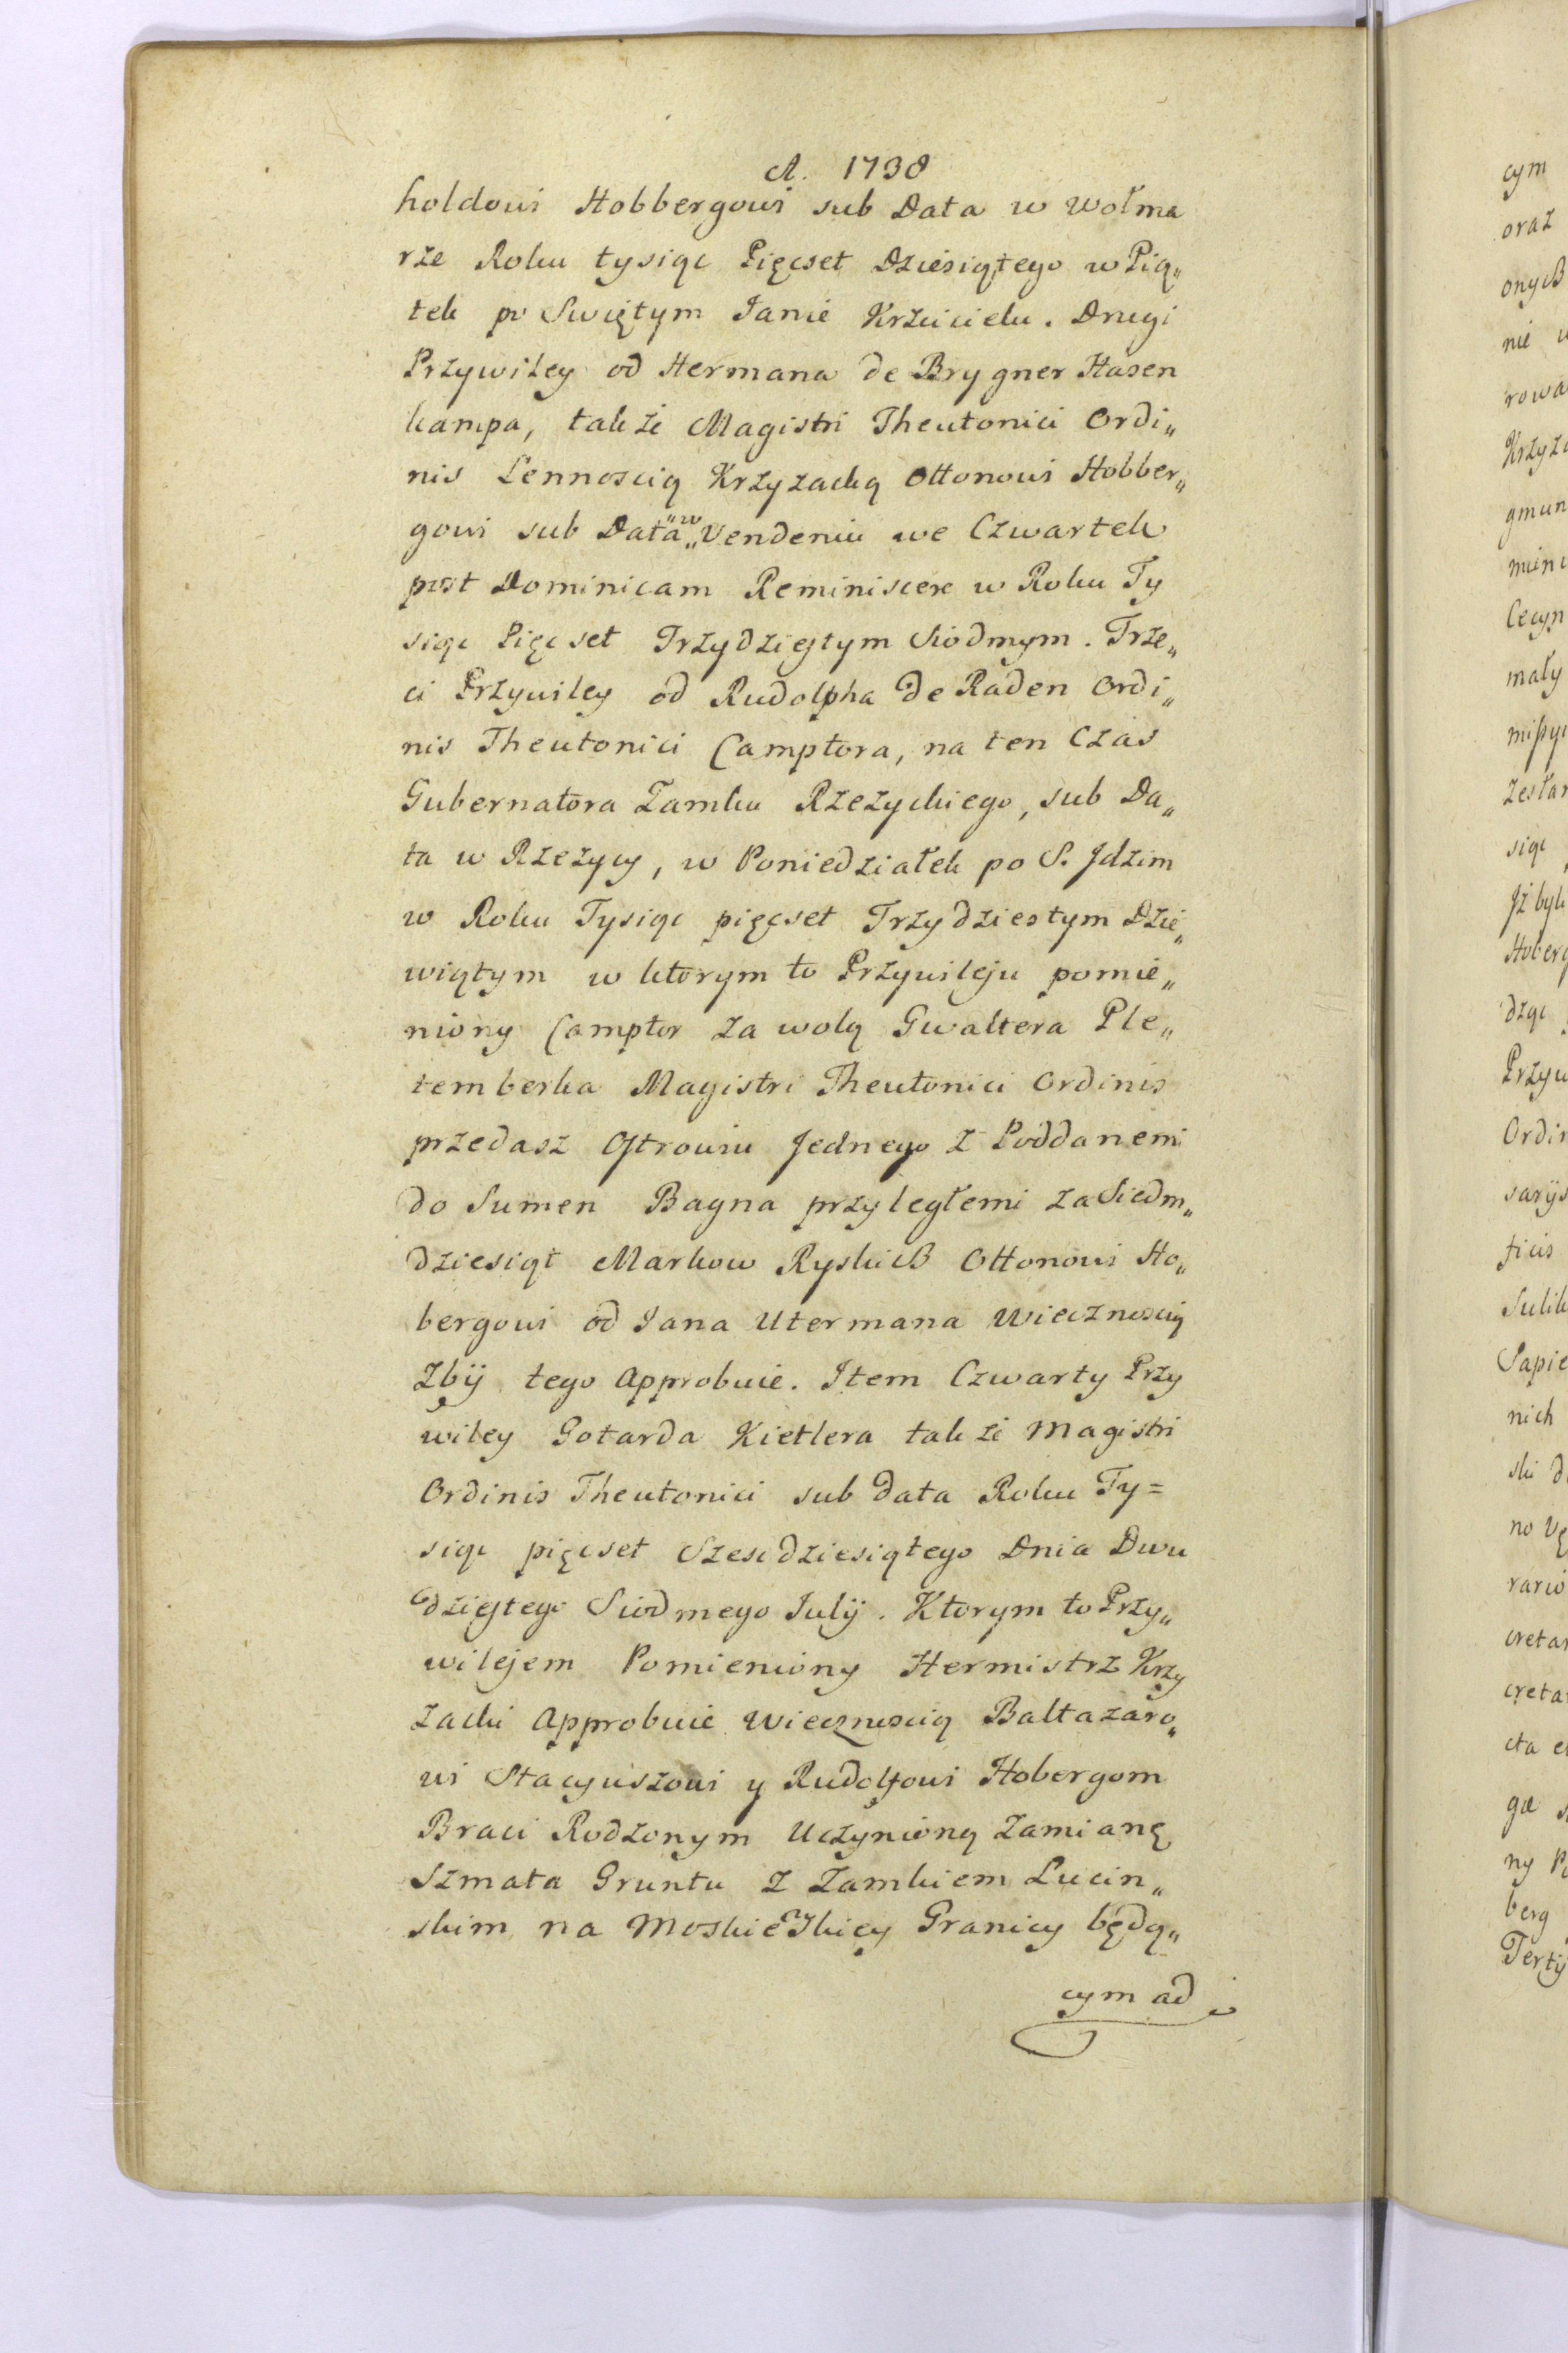 A. 1738
holdowi Hobbergowi sub Data w Wołma
rze Roku tysiąc Pięcset Dziesiątego w Pią„
tek po Swiętym Janie Krzcicielu. Drugi
Przywiley od Hermana de Brygner Hasen
kampa, także Magistri Theutonici Ordi„
nis Lennoscią Krzyzacką Ottonowi Hobber„
gowi sub Data „w„ Vendeniu we Czwartek
post Dominicam Reminiscere w Roku Ty
siąc Pięcset Trzydziestym Siodmym. Trze„
ci Przywiley od Rudolpha de Raden Ordi„
nis Theutonici Camptora, na ten Czas
Gubernatora Zamku Rzezyckiego, sub Da„
ta w Rzezycy, w Poniedziałek po S. Jdzim
w Roku Tysiąc pięcset Trzydziestym Dzie„
wiątym w ktorym to Przywileju pomie„
niony Camptor za wolą Gwaltera Ple„
temberka Magistri Theutonici Ordinis
przedasz Ostrowiu Jednego z Poddanemi
do Sumen Bagna przyległemi za Siedm„
dziesiąt Markow Ryskich Ottonowi Ho„
bergowi od Jana Utermana Wiecznoscią
Zbÿ tego Approbuie. Jtem Czwarty Przy
wiley Gotarda Kietlera także Magistri
Ordinis Theutonici sub data Roku Ty=
siąc pięcset Szescdziesiątego Dnia Dwu
dziestego Siodmego Julÿ. Ktorym to Przy„
wilejem Pomieniony Hermistrz Krzy
zacki Approbuie Wiecznoscią Baltazaro„
wi Stacyuszowi y Rudolfowi Hobergom
Braci Rodzonym Uczynioną Zamianę
Szmata Gruntu z Zamkiem Lucin„
skim na Moskiewskiey Granicy będą„
cym ad
cym
oraz
onych
nie
rowa
Krzyża
gmun
mien
Cecyn
mały
zesłan
siąc
Jż był
Hoberg
dząc
Przyw
Ordin
sarÿs
ficis
Sulik
Sapie
nich
ski d
rario
cretar
creta
cta
ga
ny
berg
Tertÿ